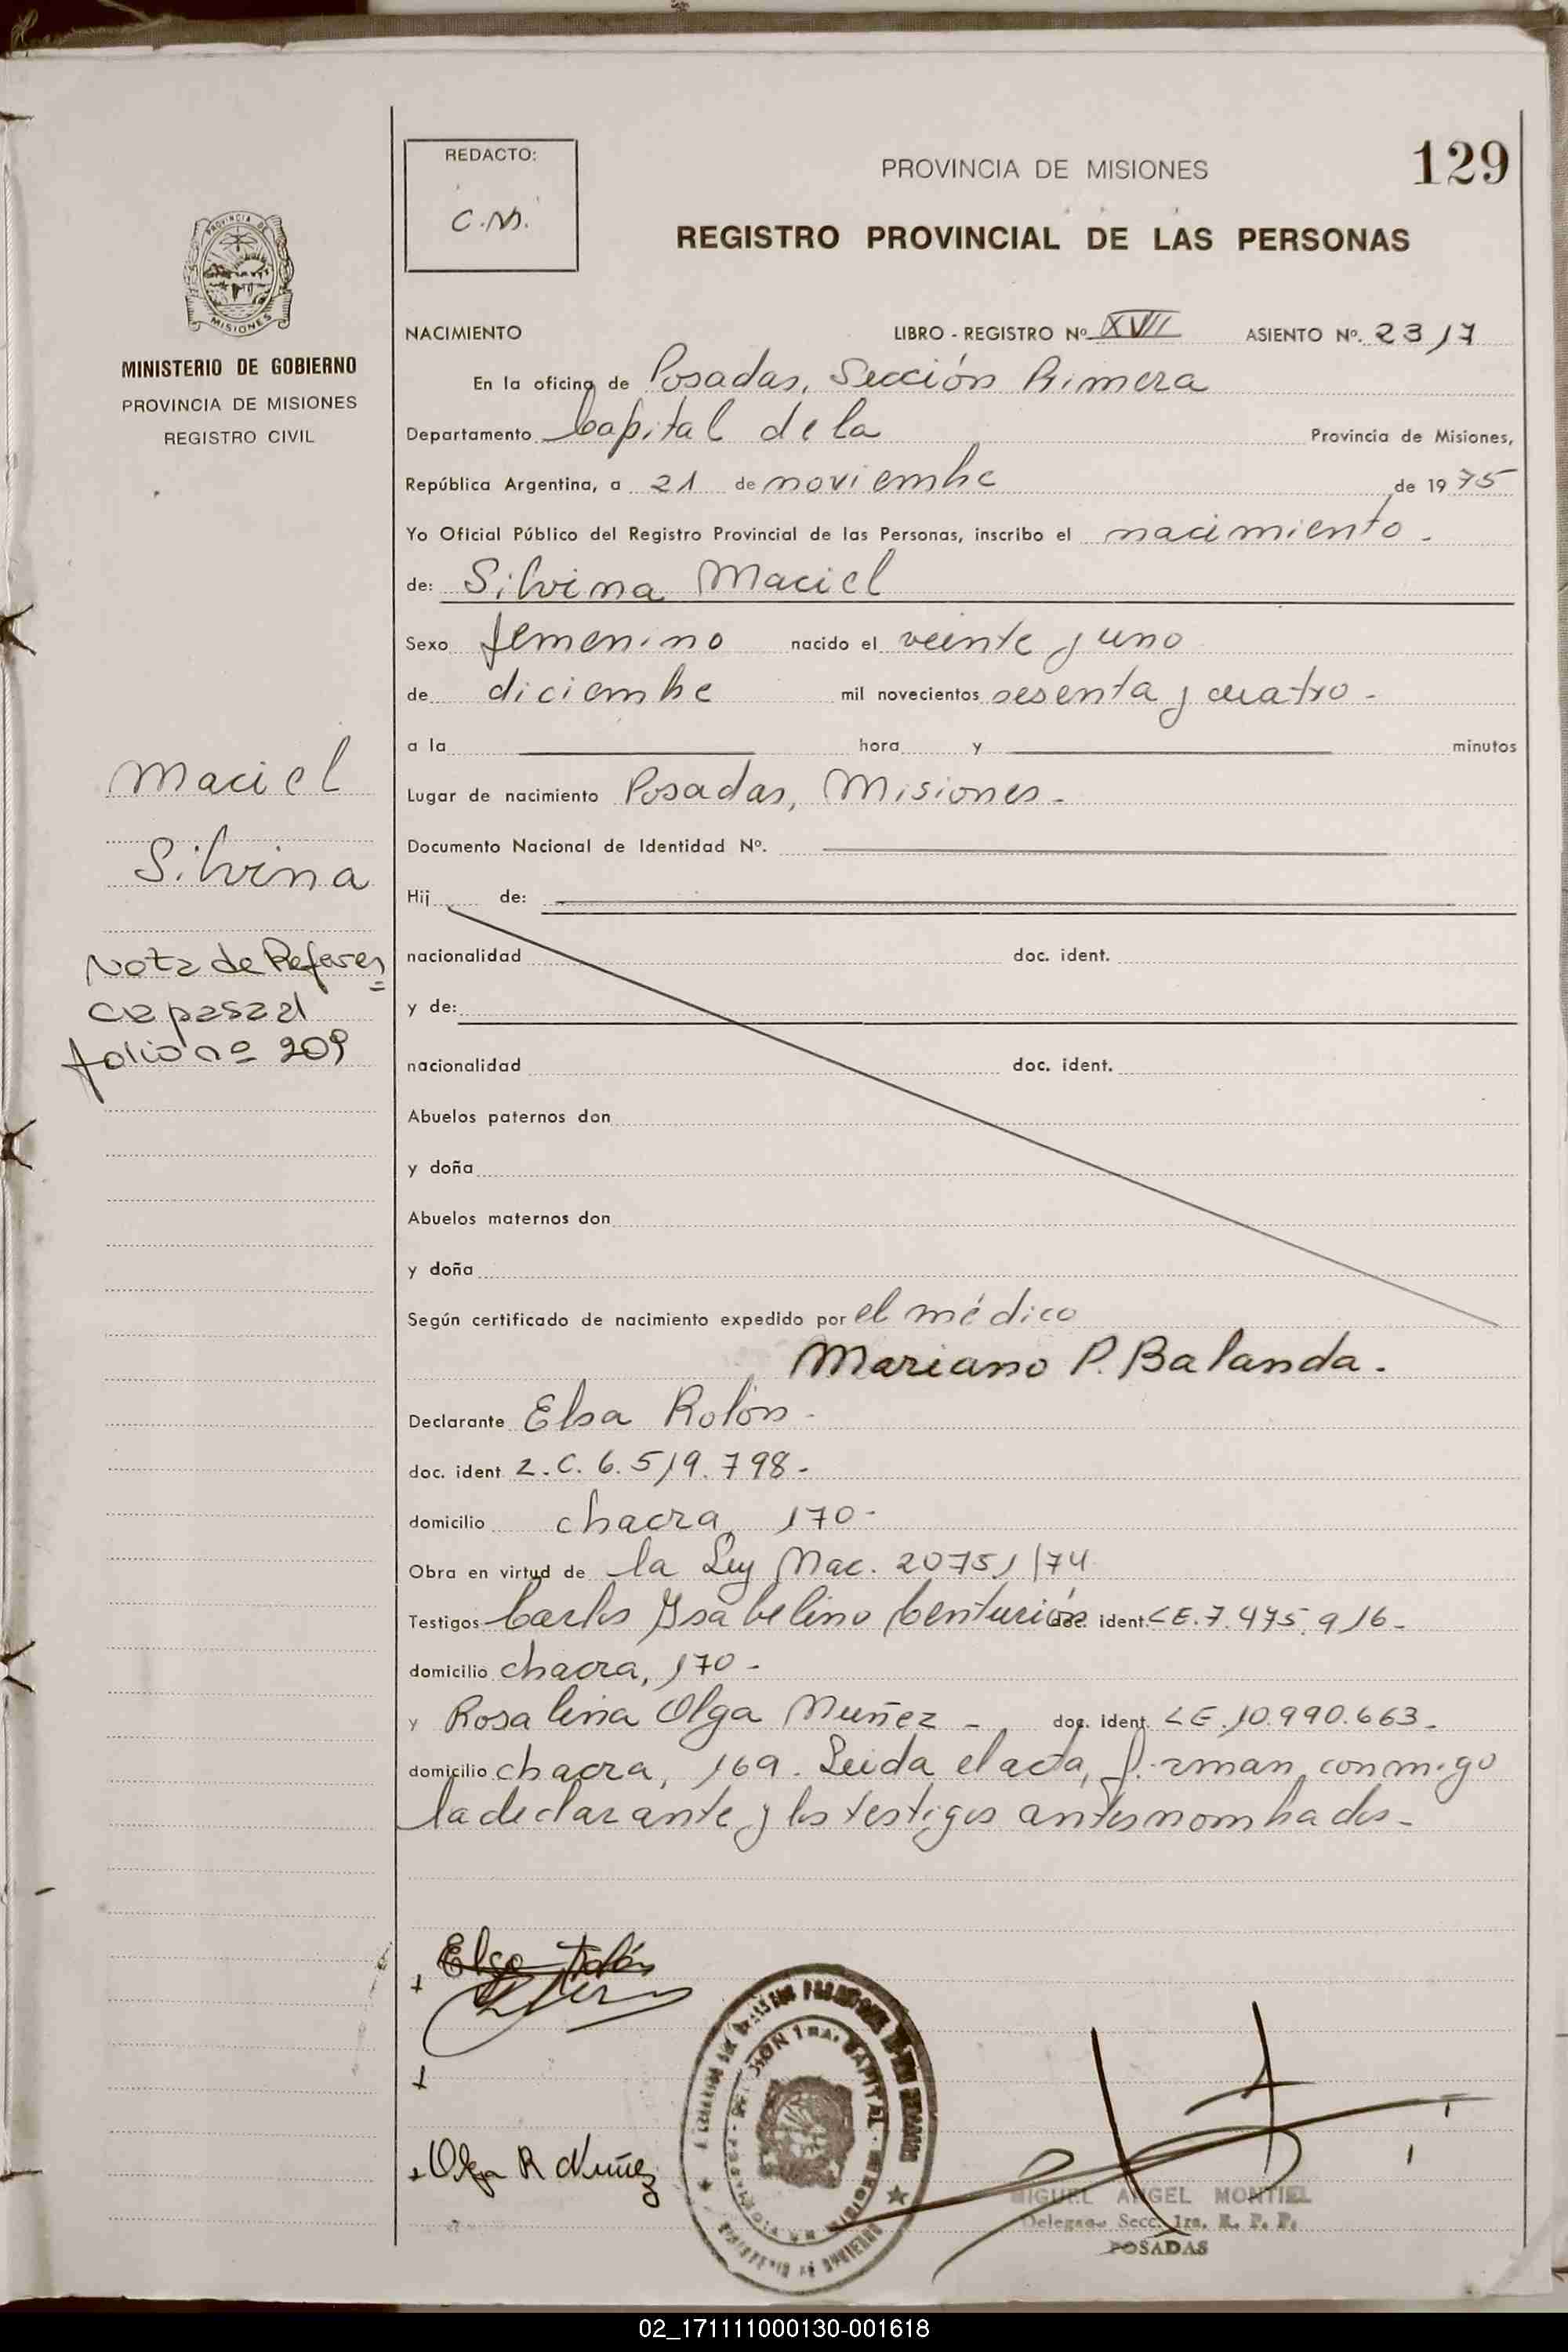 129
REDACTO:
C.M.
PROVINCIA DE MISIONES
REGISTRO PROVINCIAL DE LAS PERSONAS
PROVINCIA DE
MISIONES
MINISTERIO DE GOBIERNO
PROVINCIA DE MISIONES
REGISTRO CIVIL
NACIMIENTO LIBRO - REGISTRO Nº XVII ASIENTO Nº. 2317
En la oficina de Posadas, Sección Primera
Departamento Capital de la Provincia de Misiones,
República Argentina, a 21 de noviembre de 1975
Yo Oficial Público del Registro Provincial de las Personas, inscribo el nacimiento.
de: Silvina Maciel
Sexo femenino nacido el veinte y uno
de diciembre mil novecientos sesenta y cuatro -
a la hora y minutos
Lugar de nacimiento Posadas, Misiones -
Documento Nacional de Identidad Nº.
Hij de:
nacionalidad doc. ident.
y de:
nacionalidad doc. ident.
Abuelos paternos don
y doña
Abuelos maternos don
y doña
Según certificado de nacimiento expedido por el médico
Mariano P. Balanda.
Declarante Elsa Rolón -
doc. ident L.C. 6.519.798-
domicilio chacra 170-
Obra en virtud de la Ley Nac. 20751/74
Testigos Carlos Ysabelino Centurión doc. ident. LE. 7.475.916-
domicilio chacra, 170-
y Rosalina Olga Nuñez - doc. ident. LE. 10.990.663-
domicilio chacra, 169. Leida el acta, firman conmigo
la declarante y los testigos antes nombrados-
Maciel
Silvina
Nota de Referen=
cia pasa al
folio nº 209
Elsa Rolón
Olga R Nuñez
SECCION 1ra. CAPITAL
MINISTERIO DE GOBIERNO
MIGUEL ANGEL MONTIEL
Delegado Secc. 1ra. R. P. P.
POSADAS
02_171111000130-001618